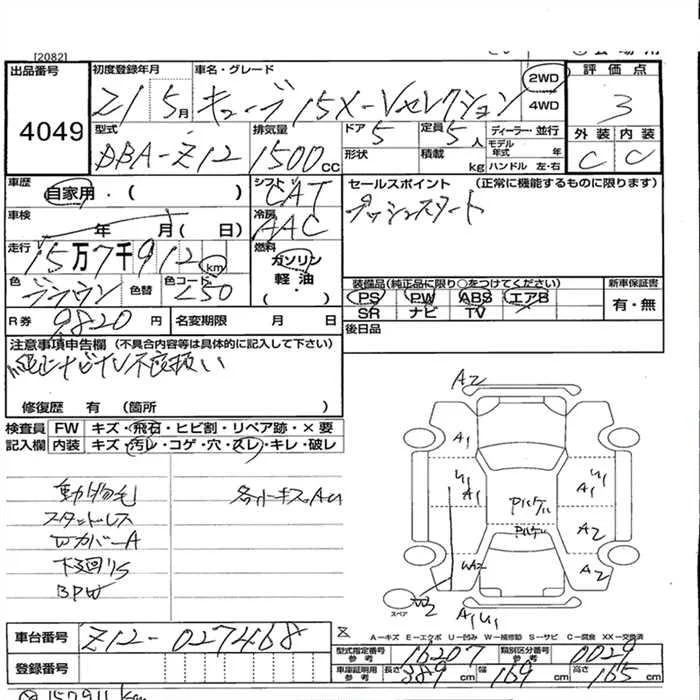 [2082]
出品番号 4049
初度登録年月 21 5月
車名・グレード キューブ 15X-Vセレクション
2WD
4WD
評価点 3
外装 内装
C C
型式 DBA-Z12
排気量 1500cc
ドア 5
定員 5人
ディーラー・並行
モデル年式 年
形状
積載 kg
ハンドル 左・右
車歴 自家用・( )
シフト CAT
セールスポイント (正常に機能するものに限ります)
プッシュスタート
車検 年 月( 日)
冷房 AAC
走行 15万7千912 km
燃料 ガソリン
軽油
( ・ )
色 ブラウン 色替
色コード
装備品(純正品に限り○をつけてください)
PS PW ABS エアB
SR ナビ TV
新車保証書
有・無
R券 9820円
名変期限 月 日
後日品
注意事項申告欄 (不具合内容等は具体的に記入して下さい)
純正ナビTV不良扱い
修復歴 有 (箇所 )
検査員記入欄
FW キズ・飛石・ヒビ割・リペア跡・×要
内装 キズ・汚レ・コゲ・穴・スレ・キレ・破レ
動物毛
スタッドレス
WカバーA
下廻りS
BPW
各小キズAU
A2
A1
U1
A1
U1
A1
Pパケバ
A2
A2
A1U1
スペア
A－キズ E－エクボ U－凹み W－補修跡 S－サビ C－腐食 XX－交換済
車台番号 Z12-027468
登録番号
型式指定番号 参考 16207
類別区分番号 参考 0029
車庫証明用 参考 長さ 389cm 幅 169cm 高さ 165cm
157911 km